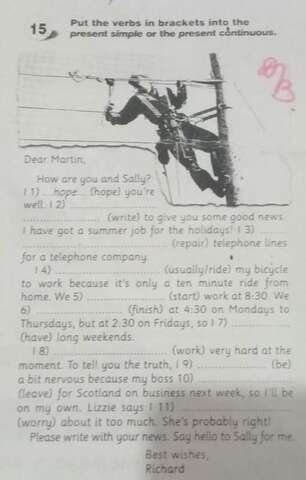 15 Put the verbs in brackets into the
present simple or the present continuous.
Dear Martin,
How are you and Sally?
I 1) hope (hope) you're
well. I 2) ....................
.................... (write) to give you some good news.
I have got a summer job for the holidays! I 3) ..........
.................... (repair) telephone lines
for a telephone company.
I 4) .................... (usually/ride) my bicycle
to work because it's only a ten minute ride from
home. We 5) .................... (start) work at 8:30. We
6) .................... (finish) at 4:30 on Mondays to
Thursdays, but at 2:30 on Fridays, so I 7) ..........
(have) long weekends.
I 8) .................... (work) very hard at the
moment. To tell you the truth, I 9) .................... (be)
a bit nervous because my boss 10) ....................
(leave) for Scotland on business next week, so I'll be
on my own. Lizzie says I 11) ....................
(worry) about it too much. She's probably right!
Please write with your news. Say hello to Sally for me.
Best wishes,
Richard